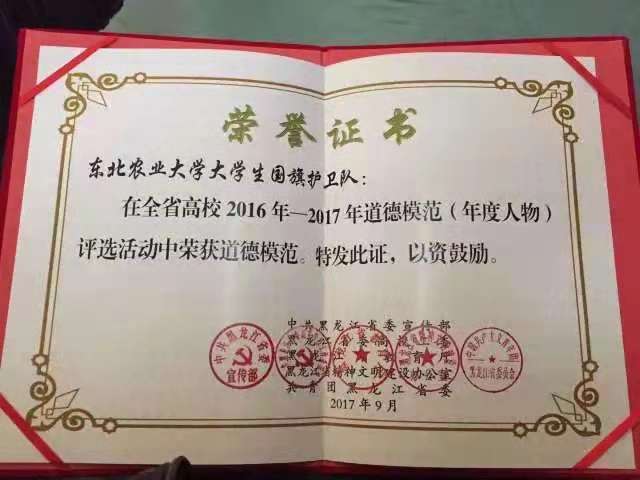 荣誉证书
东北农业大学大学生国旗护卫队：
在全省高校 2016 年—2017 年道德模范（年度人物）
评选活动中荣获道德模范。特发此证，以资鼓励。
中共黑龙江省委宣传部
黑龙江省委高
黑龙江省教育厅
黑龙江省精神文明建设办公室
共青团黑龙江省委
2017 年 9 月
中共黑龙江省委
宣传部
黑龙江省委员会